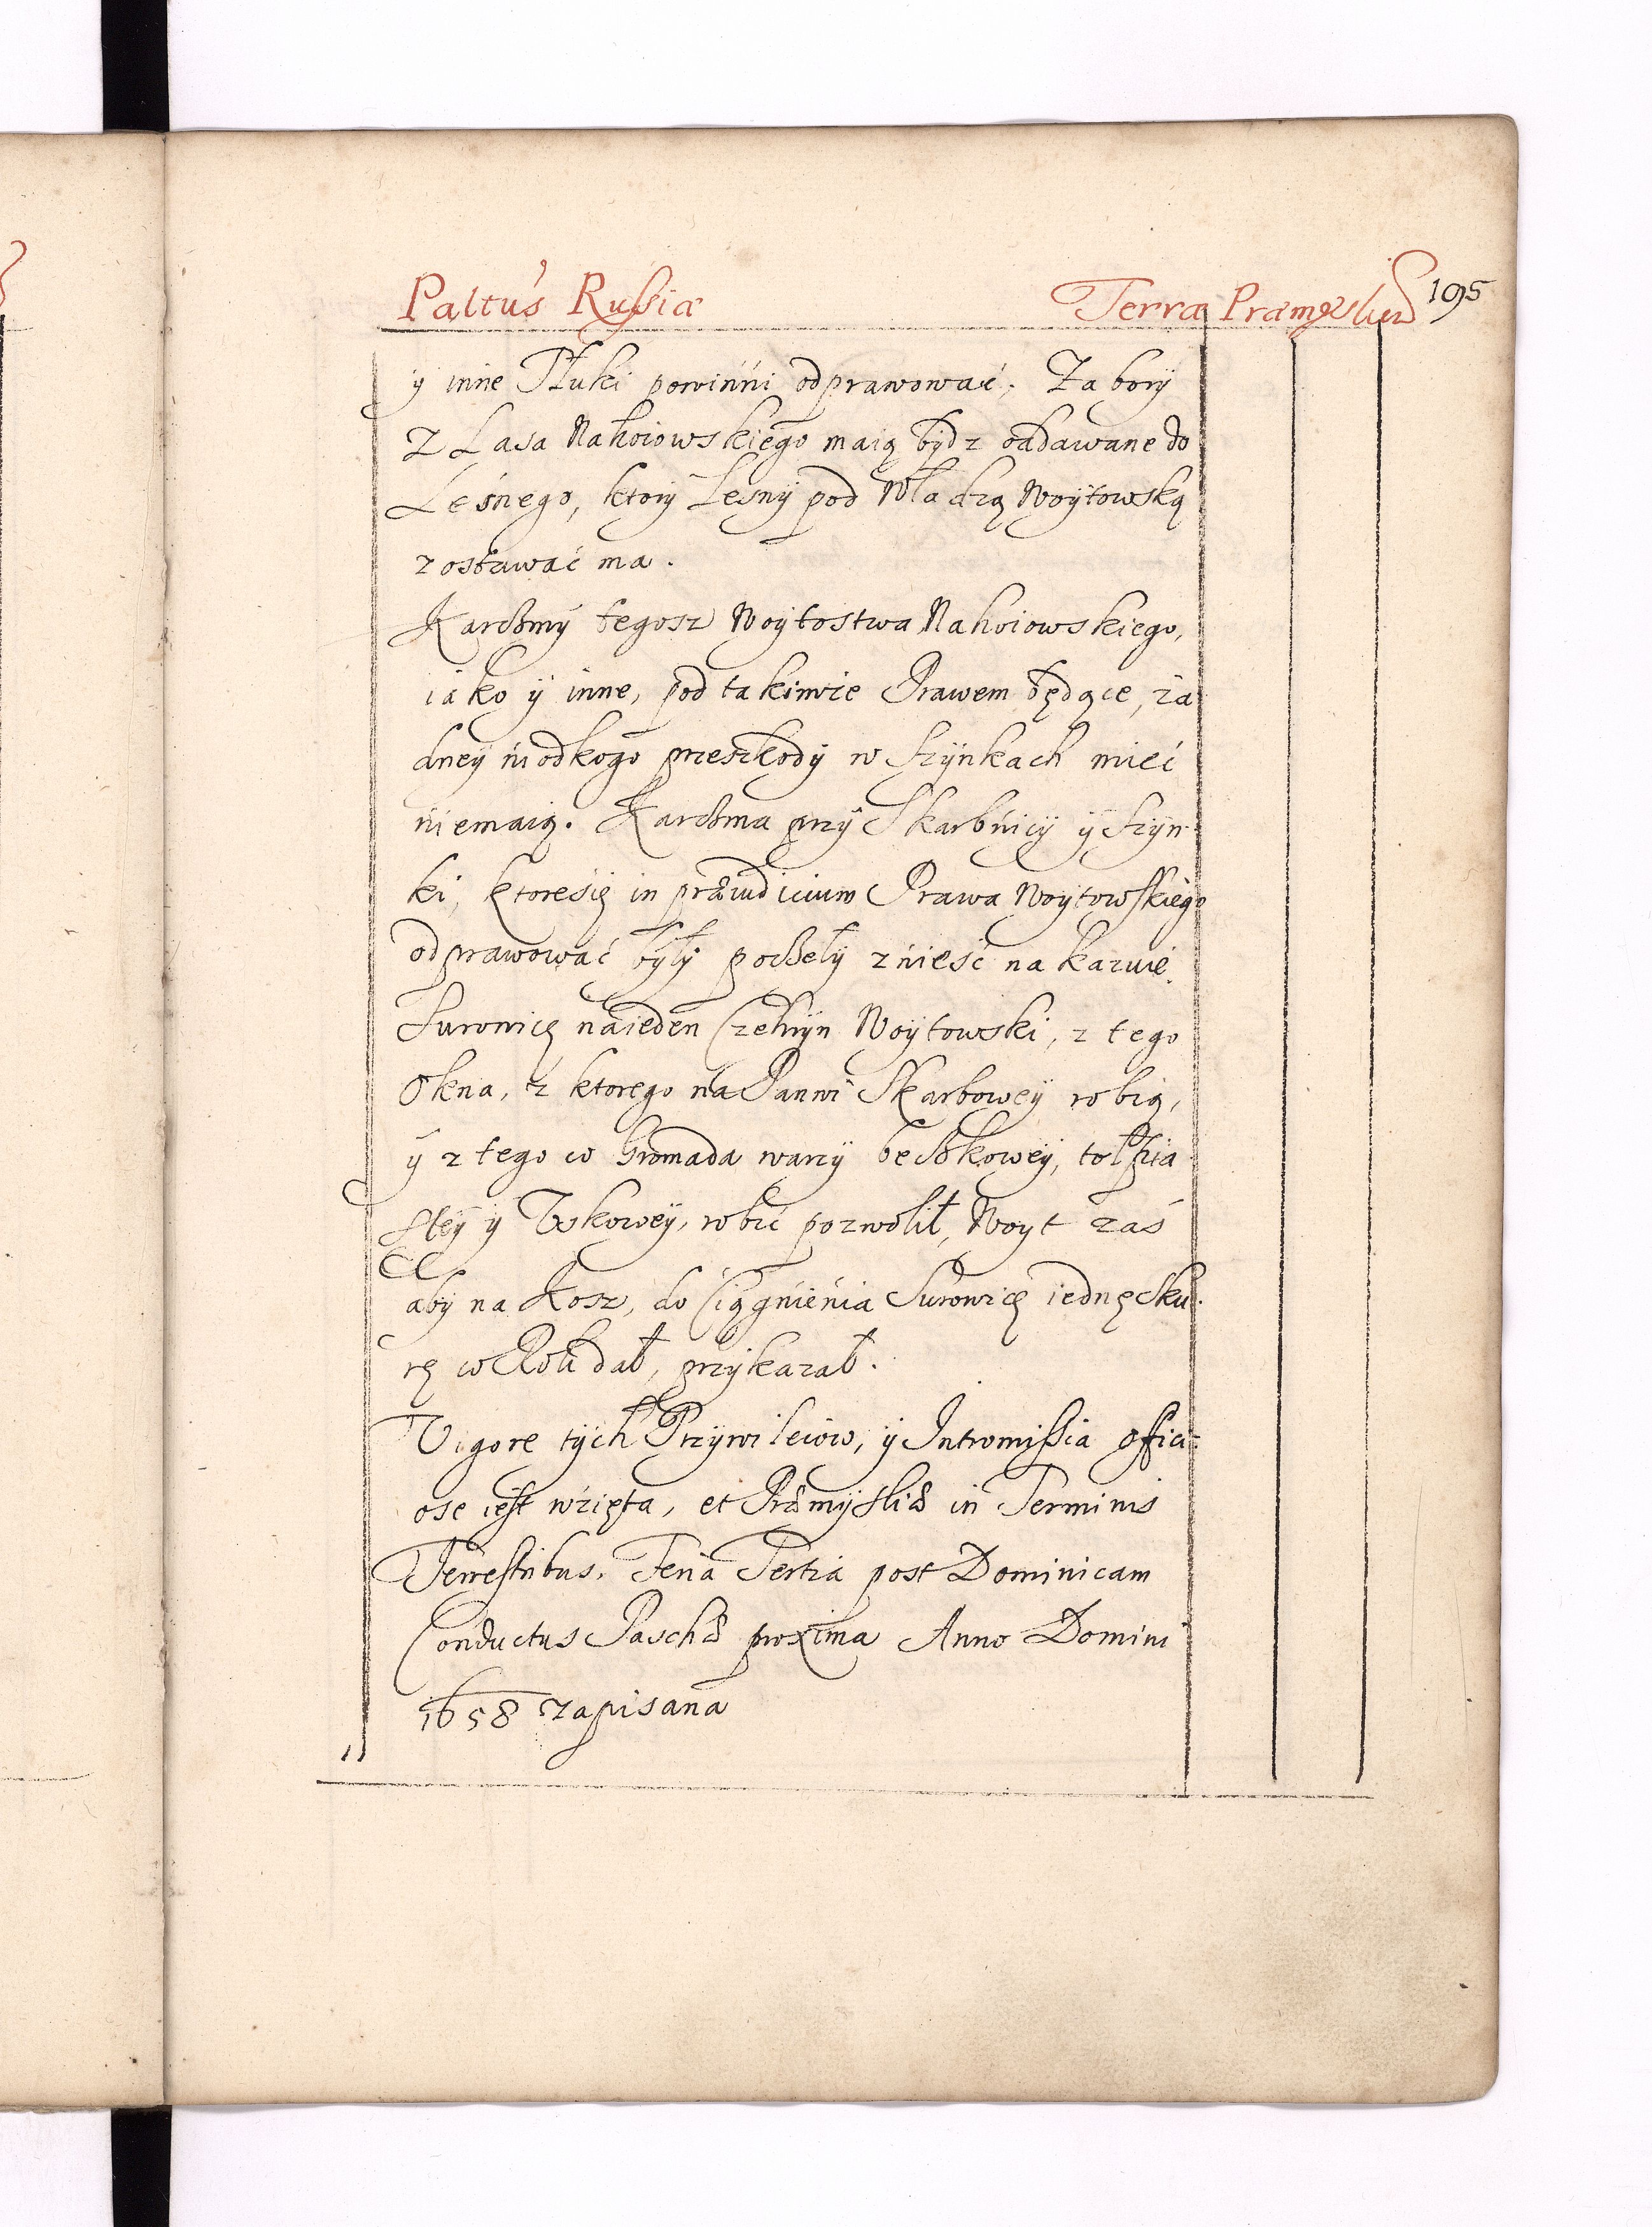 Paltus Russiæ Terra Præmysliens 195
y inne Sztuki powinni odprawować; Zabory
Z Lasa Nahoiowskiego maią bydz oddawane do
Leśnego, ktory Lesny pod Władzą Woytowską
zostawać ma.
Karczmy tegosz Woytostwa Nahoiowskiego,
iako y inne, pod takimze Prawem będące, ża
dney niodkogo przeszkody w szynkach mieć
niemaią. Karczma przy Skarbnicy y szyn-
ki, ktoresię in præiudicium Prawa Woytowskiego
odprawować były poczeły znieść na kazuię.
Surowicę naieden Czeryn Woytowski, z tego
Okna, z ktorego na Panwi Skarbowey robią,
y z tego co Gromada warzy beczkowey, tołpia
stey y robić pozwolił, Woyt zaś
aby na Kosz, do Ciągnienia Surowicę iednęsku-
rę co Rok dał, przykazał.
Vigore tych Przywileiow, y Intromissia offici-
ose iest wzięta, et Præmysliæ in Terminis
Terrestribus, Feria Tertia post Dominicam
Conductus Paschæ proxima Anno Domini
1658 zapisana